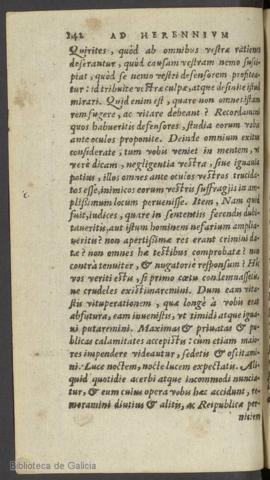 242 AD HERENNIUM
Quirites, quòd ab omnibus vestræ rationes
deserantur, quòd causam vestram nemo susci
piat, quòd se nemo vestri defensorem profitea
tur: id tribuite vestræ culpæ, atque desinite istud
mirari. Quid enim est, quare non omnes istam
rem fugere, ac vitare debeant? Recordamini
quos habueritis defensores, studia eorum vobis
ante oculos proponite. Deinde omnium exitus
considerate, tum vobis veniet in mentem, vt
verè dicam, negligentia vestra, siue ignauia
potius, illos omnes ante oculos vestros trucida-
tos esse, inimicos eorum vestris suffragijs in am-
plissimum locum peruenisse. Item, Nam quid
fuit, iudices, quare in sententiis ferendis dubi-
taueritis, aut istum hominem nefarium amplia-
ueritis? non apertissimæ res erant crimini da-
tæ? non omnes hæ testibus comprobatæ? non
contrà tenuiter, & nugatoriè responsum? Hic
vos veriti estis, si primo cœtu condemnassetis,
ne crudeles existimaremini. Dum eam vita-
stis vituperationem, quæ longè à vobis erat
abfutura, eam inuenistis, vt timidi atque igna-
ui putaremini. Maximas & priuatas & pu-
blicas calamitates accepistis: cum etiam maio-
res impendere videantur, sedetis & oscitami-
ni. Luce noctem, nocte lucem expectatis. Ali-
quid quotidie acerbi atque incommodi nuncia-
tur, & eum cuius opera vobis hæc accidunt, re-
moramini diutius & alitis, ac Reipublicæ per-
niciem
Biblioteca de Galicia